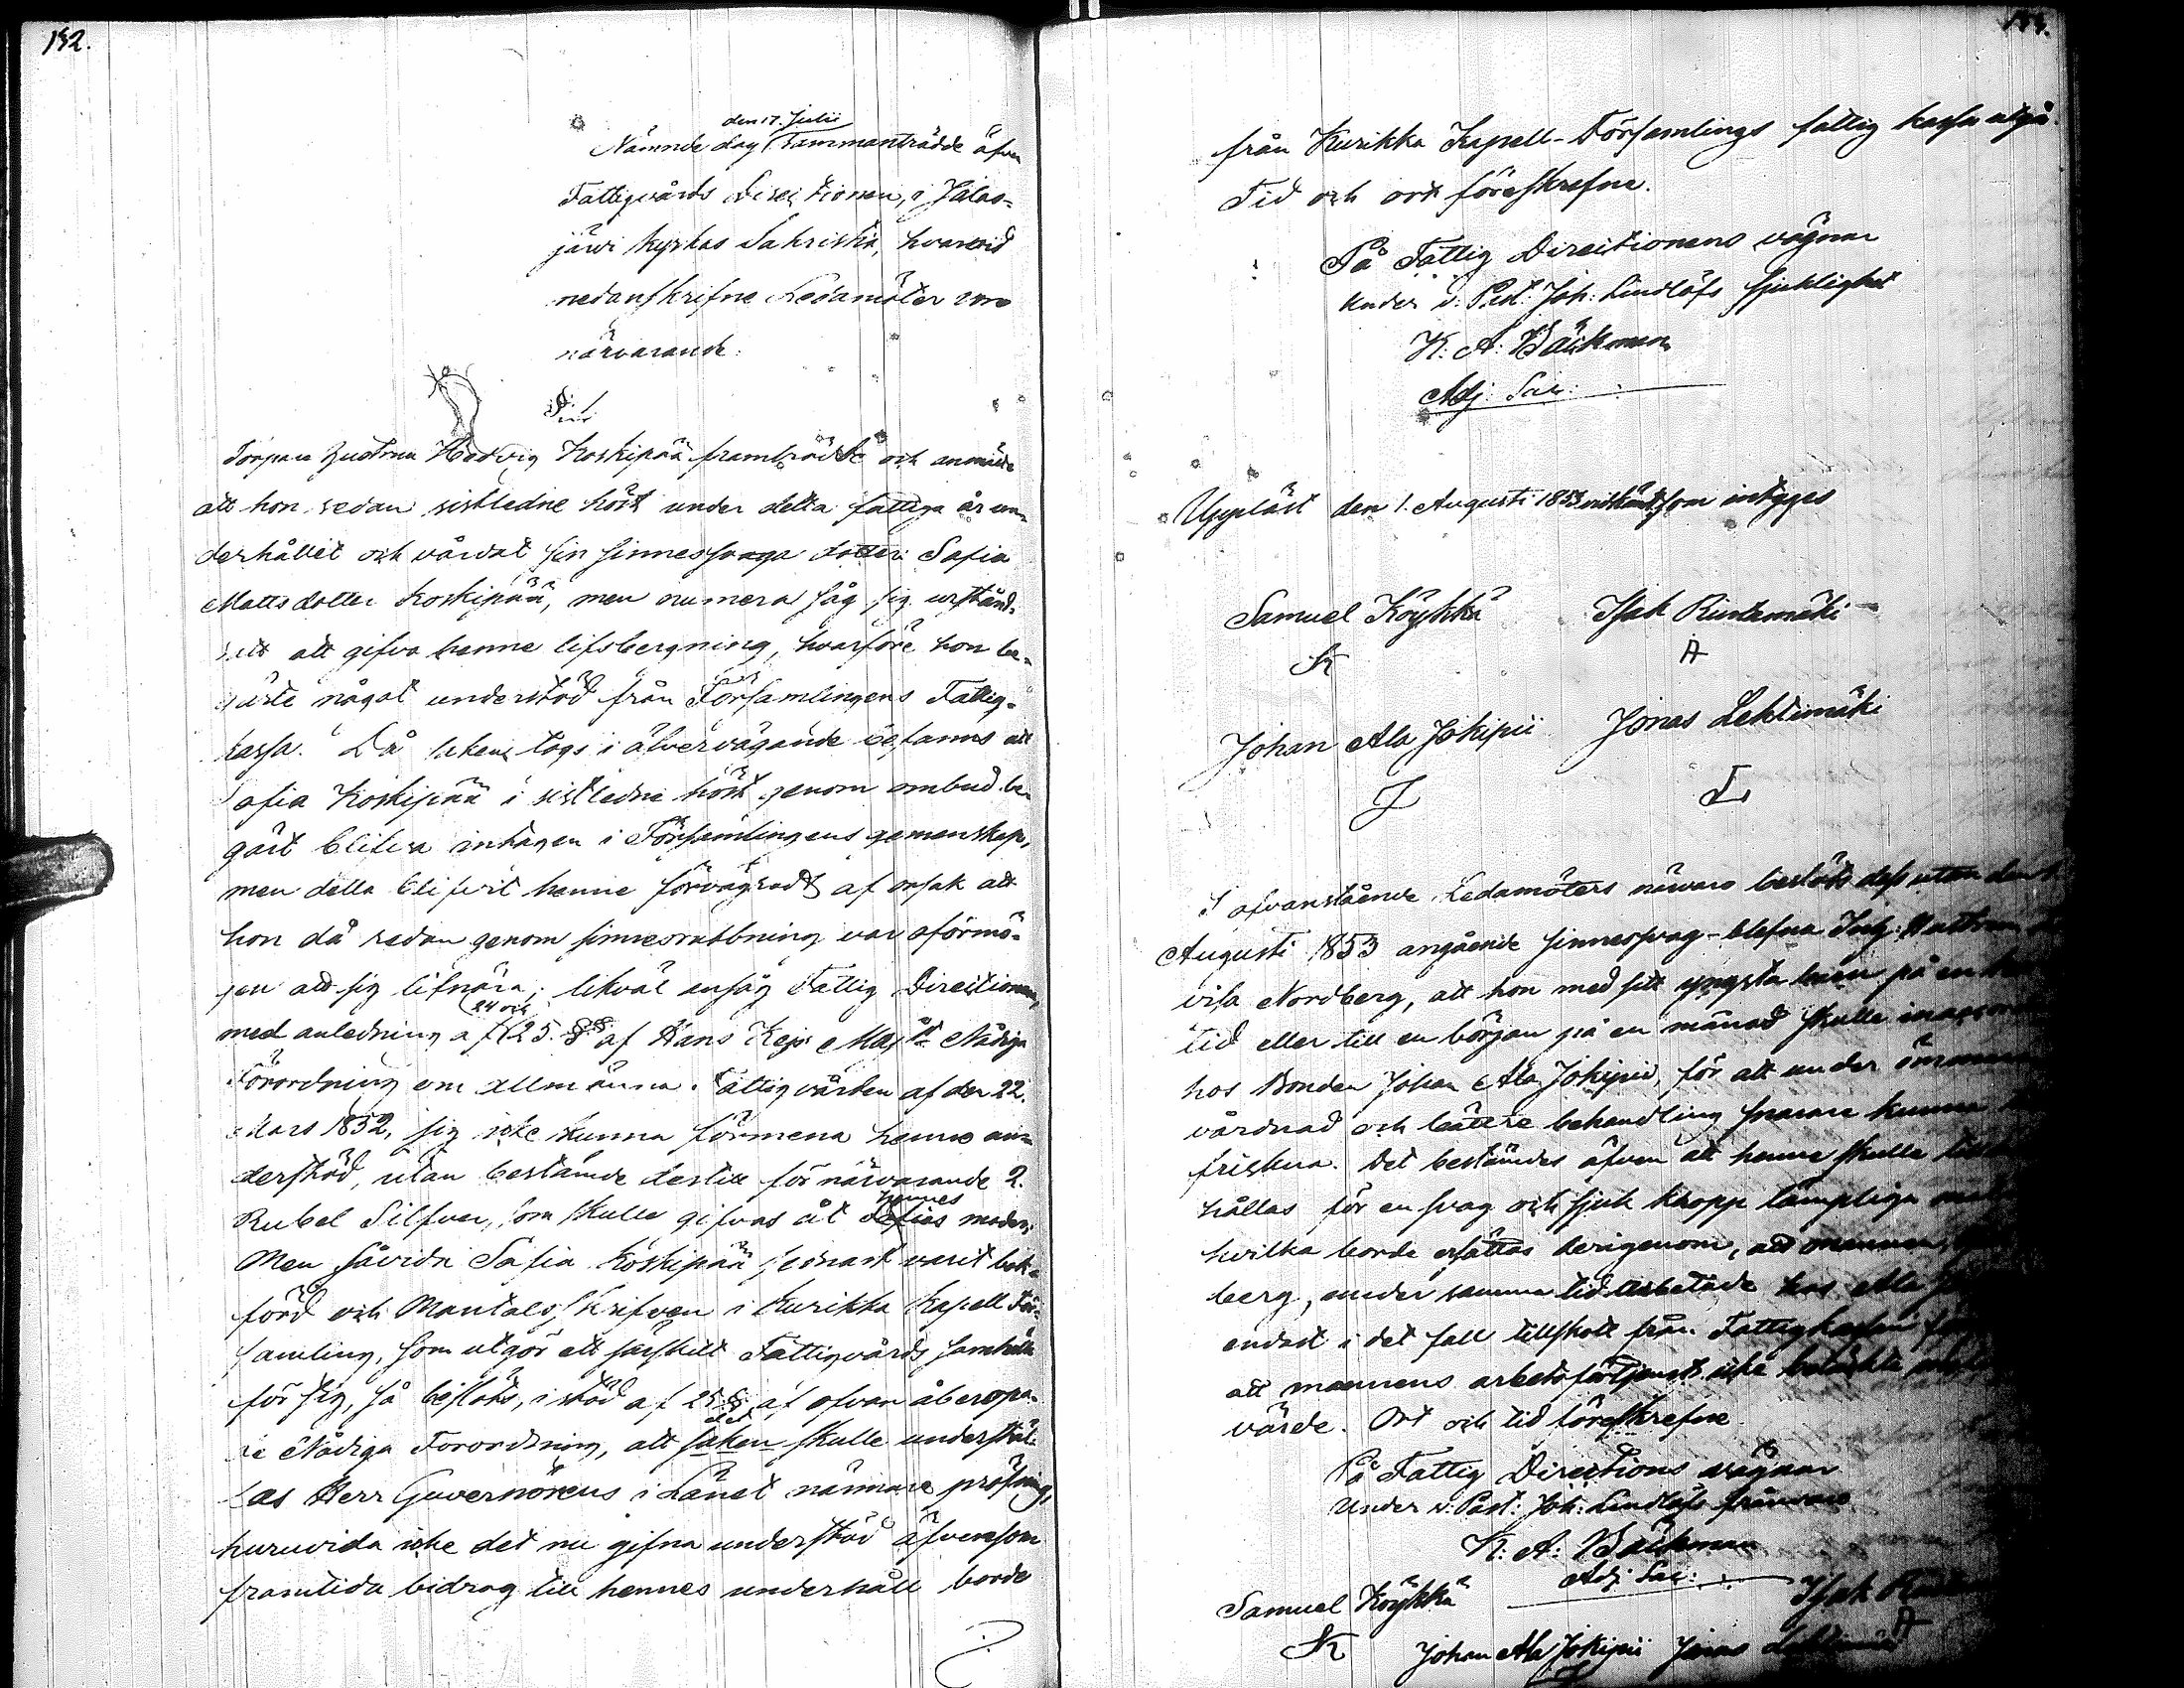 152.
den 17. Julii
Nämnde dag sammanträdde äfven
Fattigvårds Direitionen, i Jalas=
järvi kyrkas Sakristia, hvarvid
nedanskrifne Ledamöter voro
närvarande:
§ 1.
Torpare Enkan Hedvig Koskipää framträdde och anmälde
att hon redan sistledne höst under detta fattiga år un=
derhållit och vårdat sin sinnessvaga dotter Sofia
Matts dotter Koskipää, men numera såg sig urstånd=
satt att gifva henne lifsbergning, hvarföre hon be=
gärte något understöd från Församlingens Fattig=
kassa. Då saken togs i öfvervägande befanns att
Sofia Koskipää i sistledne höst genom ombud be=
gärt blifva intagen i Församlingens gemenskap,
men detta blifvit henne förvägradt af orsak att
hon då redan genom sinnesrubbning var oförmö=
gen att sig lifnära; likväl ansåg Fattig Direitionen,
24 och
med anledning af 25. §§ af Hans Kejs. Maj:ts Nådiga
Förordning om Allmänna Fattigvården af den 22.
Mars 1852, sig icke kunna förmena henne un=
derstöd, utan bestämde dertill för närvarande 2.
Rubel Silfver, som skulle gifvas åt Sofias moder;
hennes
Men såvida Sofia Koskipää senast varit bok=
förd och Mantals skrifven i Kurikka Kapell För=
samling, som utgör ett särskilt Fattigvårds samhälle
för sig, så beslöts, i stöd af 25 § af ofvan åberopa=
de Nådiga Förordning, att saken skulle underställ=
det
las Herr Guvernörens i Länet närmare pröfning,
huruvida icke det nu gifna understöd äfvensom
framtida bidrag till hennes underhåll borde
från Kurikka Kapell-Församlings fattig kassa utgå.
Tid och ort föreskrefne.
På Fattig Direitionens vägnar
under v: Past: Joh: Lindlöfs sjuklighet
K: A: Bäckman
Adj: Sac:
Uppläst den 1. Augusti 1853 som intygas
Samuel Köykkä Isak Rintamäki
K A
Johan Ala Jokipii Jonas Lehtimäki
J L
I ofvanstående Ledamöters närvaro beslöts dess utan den 1
Augusti 1853 angående sinnessvag-blefna
visa Nordberg, att hon med sitt yngsta barn på en
tid eller till en början på en månad skulle
hos Bonden Johan Ala Jokipii, för att under
vårdnad och bättre behandling snarare kunna
friskna. Det bestämdes äfven att henne skulle
hållas för en svag och sjuk kropp lämpliga
hvilka borde ersättas derigenom, att mannen,
berg, under samma tid arbetade hos Ala
endast i det fall tillskott från Fattigkassan
att mannens arbetsförtjenst icke betäckte
värde. Ort och tid föreskrefne
På Fattig Direitions vägnar
Under v: Past: Joh: Lindlöfs frånvaro
K: A: Bäckman
Adj: Sac:
Samuel Köykkä Isak
K A
Johan Ala Jokipii Jonas
J